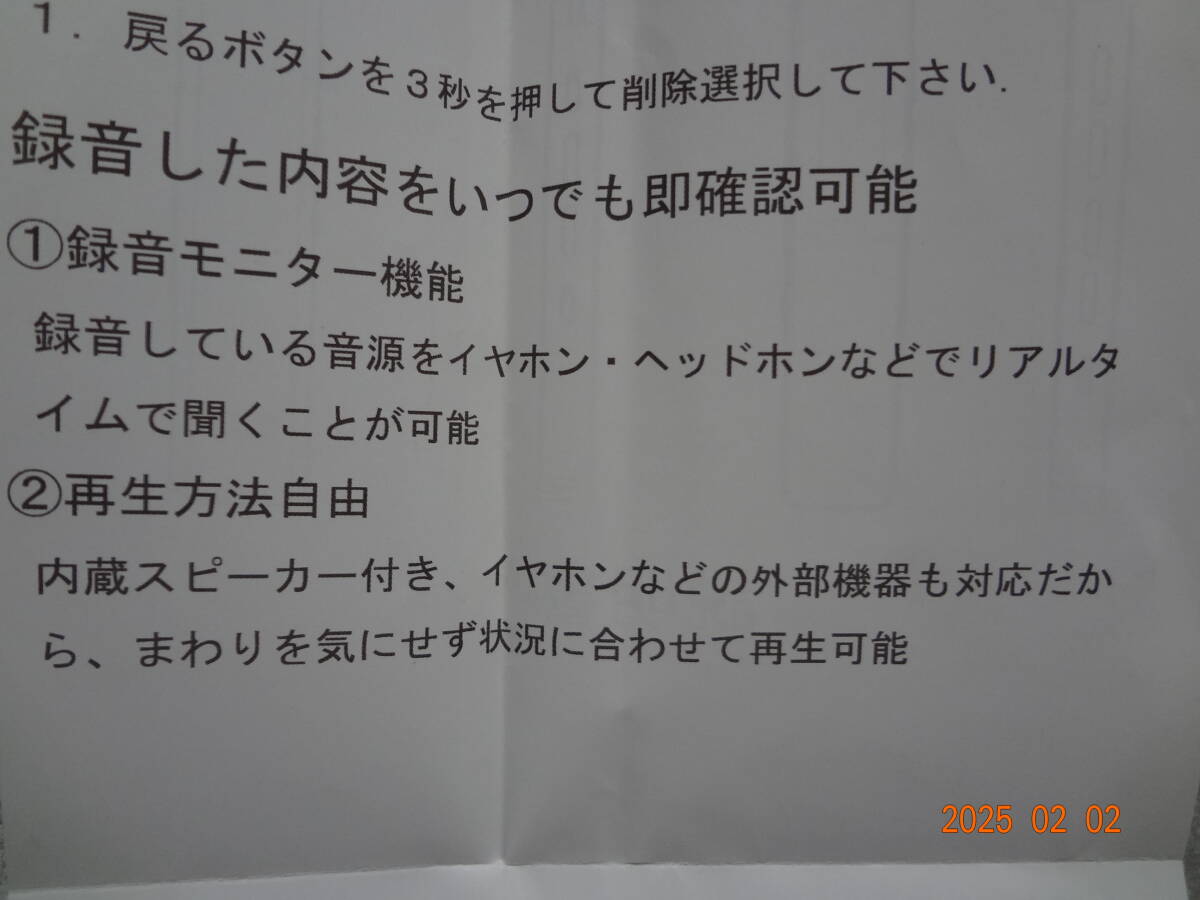 1．戻るボタンを３秒を押して削除選択して下さい.
録音した内容をいつでも即確認可能
①録音モニター機能
録音している音源をイヤホン・ヘッドホンなどでリアルタ
イムで聞くことが可能
②再生方法自由
内蔵スピーカー付き、イヤホンなどの外部機器も対応だか
ら、まわりを気にせず状況に合わせて再生可能
2025 02 02